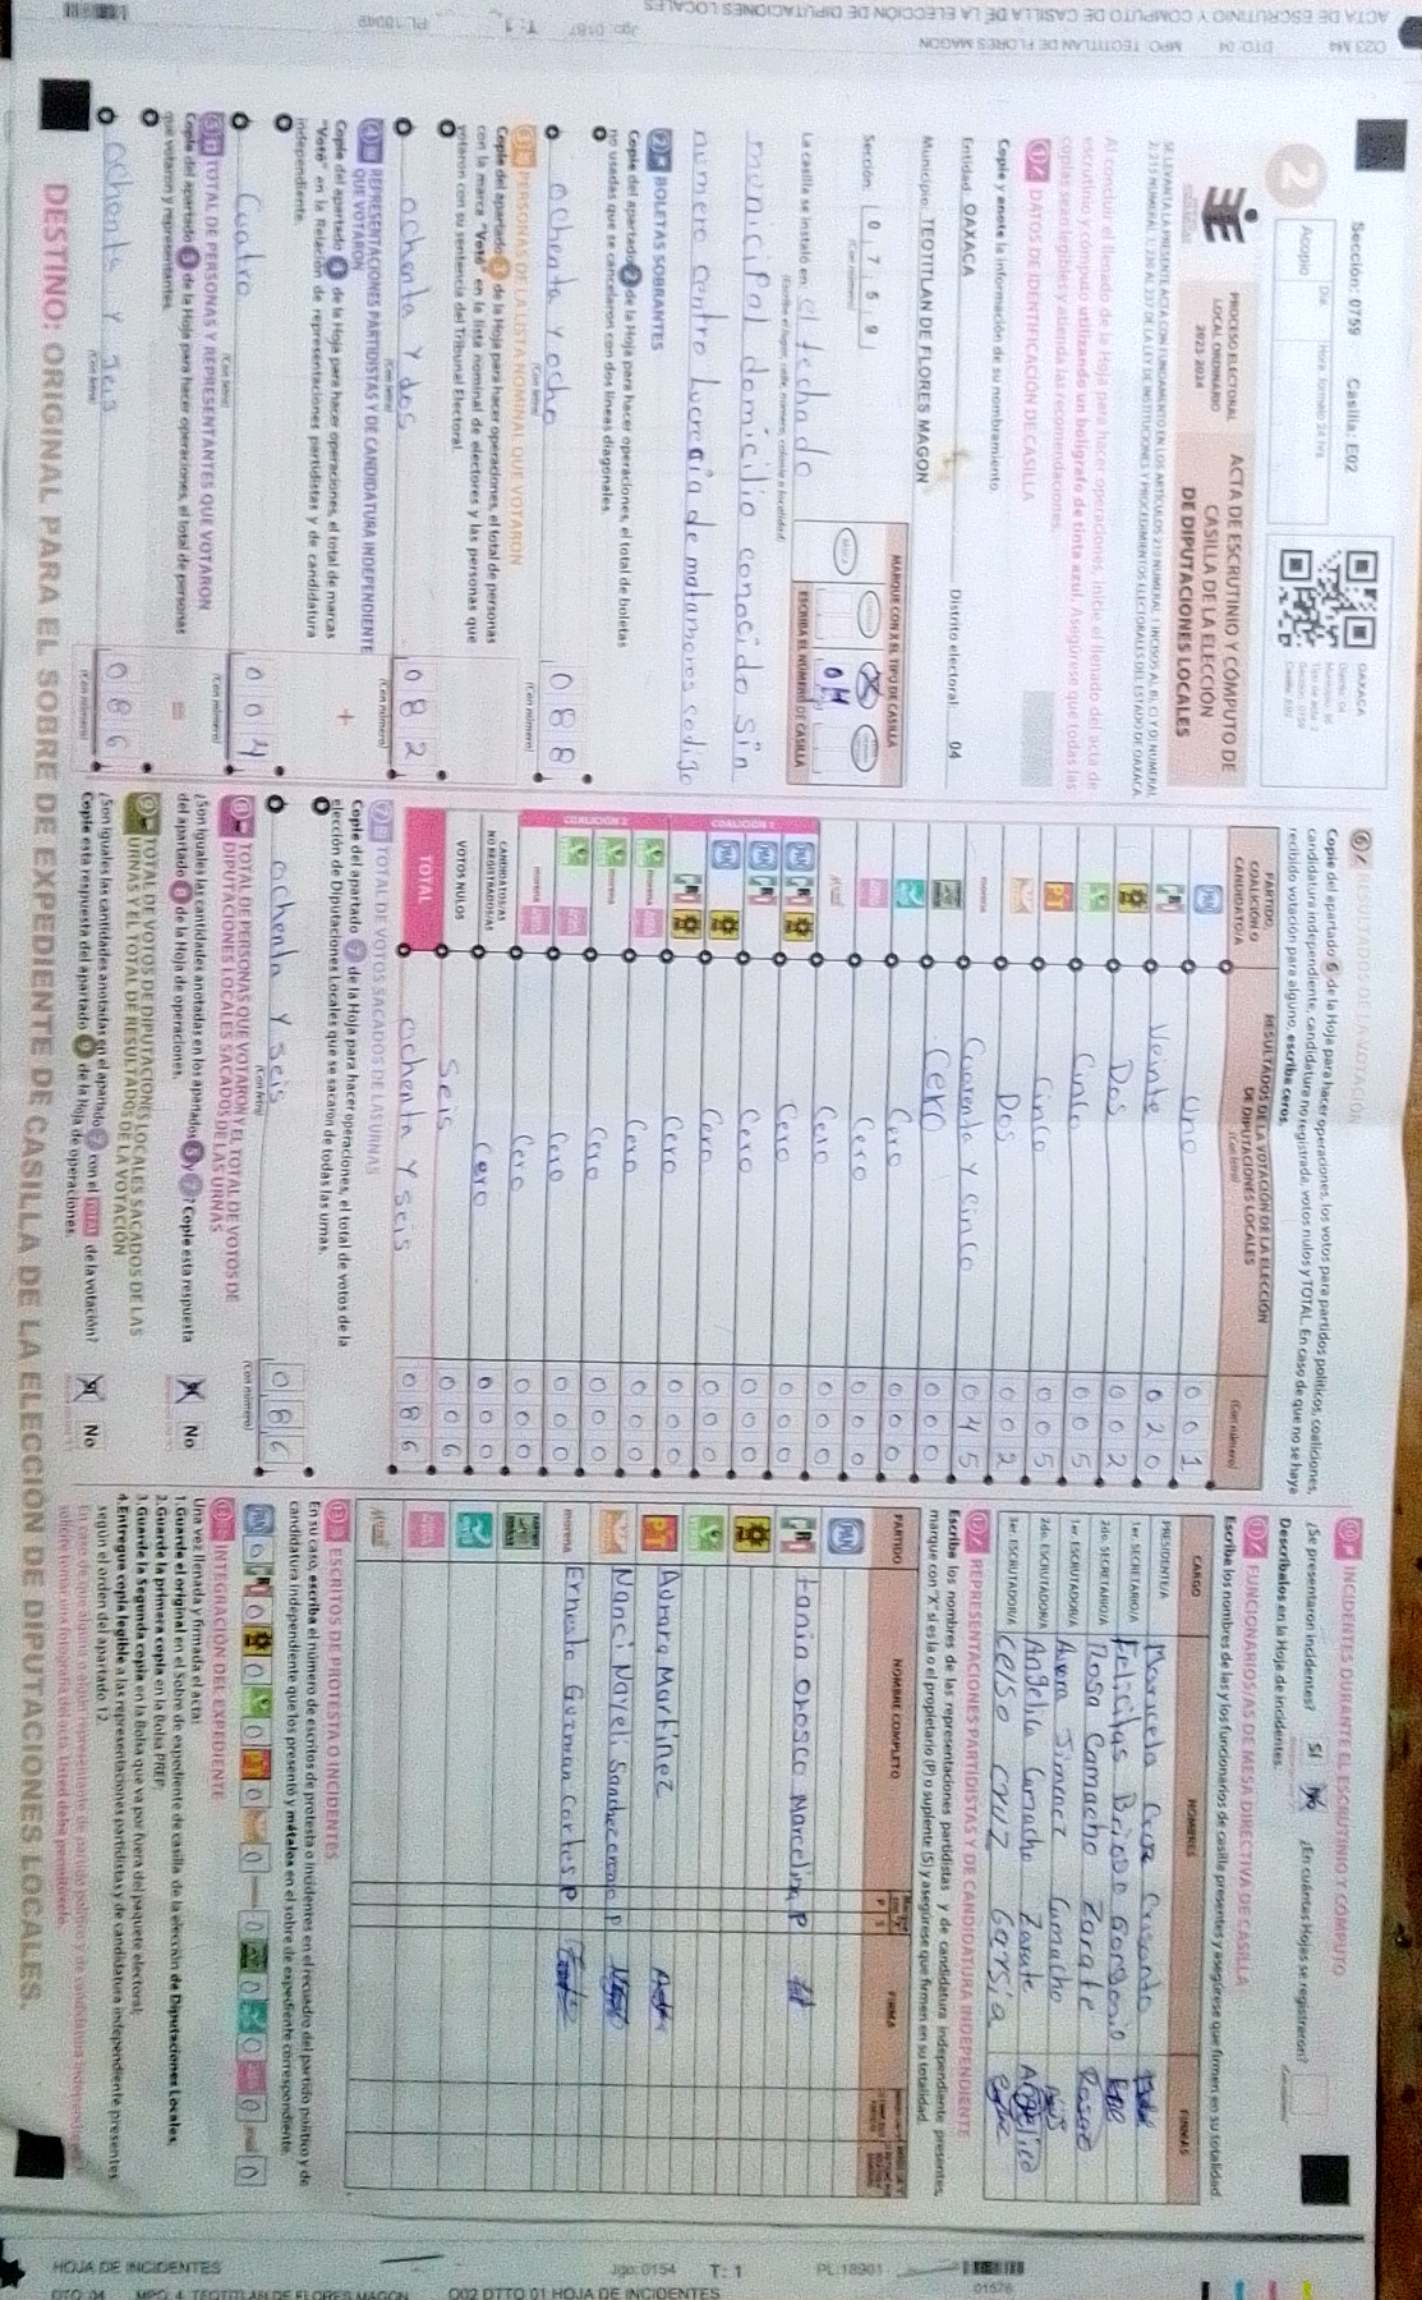 023 M4 DTO. 04 MPO. TEOTITLAN DE FLORES MAGON Jgo: 0187 T: 1
ACTA DE ESCRUTINIO Y COMPUTO DE CASILLA DE LA ELECCIÓN DE DIPUTACIONES LOCALES
Sección: 0759 Casilla: E02
2
Día Hora formato 24 hrs
Acopio
OAXACA
PROCESO ELECTORAL
LOCAL ORDINARIO
2023-2024
ACTA DE ESCRUTINIO Y CÓMPUTO DE
CASILLA DE LA ELECCIÓN
DE DIPUTACIONES LOCALES
Al concluir el llenado de la Hoja para hacer operaciones, inicie el llenado del acta de
escrutinio y cómputo utilizando un bolígrafo de tinta azul. Asegúrese que todas las
copias sean legibles y atienda las recomendaciones.
1 DATOS DE IDENTIFICACIÓN DE CASILLA
Copie y anote la información de su nombramiento.
Entidad: OAXACA Distrito electoral: 04
Municipio: TEOTITLAN DE FLORES MAGON
Sección: 0 7 5 9
(Con número)
MARQUE CON X EL TIPO DE CASILLA
ESCRIBA EL NÚMERO DE CASILLA
La casilla se instaló en: el techado
(Escriba el lugar, calle, número, colonia o localidad)
municipal domicilio conocido sin
numero centro Lucrecia de matamoros codigo
2 BOLETAS SOBRANTES
Copie del apartado 2 de la Hoja para hacer operaciones, el total de boletas
no usadas que se cancelaron con dos líneas diagonales.
ochenta y ocho 088
(Con letra) (Con número)
3 PERSONAS DE LA LISTA NOMINAL QUE VOTARON
Copie del apartado 3 de la Hoja para hacer operaciones, el total de personas
con la marca "Votó" en la lista nominal de electores y las personas que
votaron con su sentencia del Tribunal Electoral.
ochenta y dos 082
(Con letra) (Con número)
4 REPRESENTACIONES PARTIDISTAS Y DE CANDIDATURA INDEPENDIENTE
QUE VOTARON
Copie del apartado 4 de la Hoja para hacer operaciones, el total de marcas
"Votó" en la Relación de representaciones partidistas y de candidatura
independiente.
+
Cuatro 004
(Con letra) (Con número)
5 TOTAL DE PERSONAS Y REPRESENTANTES QUE VOTARON
Copie del apartado 5 de la Hoja para hacer operaciones, el total de personas
que votaron y representantes.
=
ochenta y seis 086
(Con letra) (Con número)
6 RESULTADOS DE LA VOTACIÓN
Copie del apartado 6 de la Hoja para hacer operaciones, los votos para partidos políticos, coaliciones,
candidatura independiente, candidatura no registrada, votos nulos y TOTAL. En caso de que no se haya
recibido votación para alguno, escriba ceros.
PARTIDO, COALICIÓN O CANDIDATO/A
RESULTADOS DE LA VOTACIÓN DE LA ELECCIÓN DE DIPUTACIONES LOCALES
(Con letra) (Con número)
PAN Uno 001
PRI Veinte 020
PRD Dos 002
VERDE Cinco 005
PT Cinco 005
Dos 002
morena Cuarenta y cinco 045
Cero 000
Cero 000
Cero 000
Cero 000
COALICIÓN 1
PAN PRI PRD Cero 000
PAN PRI Cero 000
PAN PRD Cero 000
PRI PRD Cero 000
COALICIÓN 2
VERDE morena Cero 000
VERDE morena Cero 000
VERDE Cero 000
morena Cero 000
CANDIDATOS/AS NO REGISTRADOS/AS Cero 000
VOTOS NULOS Seis 006
TOTAL ochenta y seis 086
7 TOTAL DE VOTOS SACADOS DE LAS URNAS
Copie del apartado 7 de la Hoja para hacer operaciones, el total de votos de la
elección de Diputaciones Locales que se sacaron de todas las urnas.
ochenta y seis 086
(Con letra) (Con número)
8 TOTAL DE PERSONAS QUE VOTARON Y EL TOTAL DE VOTOS DE
DIPUTACIONES LOCALES SACADOS DE LAS URNAS
¿Son iguales las cantidades anotadas en los apartados 5 y 7? Copie esta respuesta
del apartado 8 de la Hoja de operaciones. Sí No
9 TOTAL DE VOTOS DE DIPUTACIONES LOCALES SACADOS DE LAS
URNAS Y EL TOTAL DE RESULTADOS DE LA VOTACIÓN
¿Son iguales las cantidades anotadas en el apartado 7 con el TOTAL de la votación?
Copie esta respuesta del apartado 9 de la Hoja de operaciones. Sí No
10 INCIDENTES DURANTE EL ESCRUTINIO Y CÓMPUTO
¿Se presentaron incidentes? Sí No ¿En cuántas Hojas se registraron?
Descríbalos en la Hoja de incidentes.
11 FUNCIONARIOS/AS DE MESA DIRECTIVA DE CASILLA
Escriba los nombres de las y los funcionarios de casilla presentes y asegúrese que firmen en su totalidad.
CARGO NOMBRES FIRMAS
PRESIDENTE/A Maricela Cruz Crisanto
1er. SECRETARIO/A Felicitas Brioso Gordonio
2do. SECRETARIO/A Rosa Camacho Zarate
1er. ESCRUTADOR/A Aurora Jimenez Camacho
2do. ESCRUTADOR/A Angelica Camacho Zarate Angelica
3er. ESCRUTADOR/A Celso Cruz Garsia
12 REPRESENTACIONES PARTIDISTAS Y DE CANDIDATURA INDEPENDIENTE
Escriba los nombres de las representaciones partidistas y de candidatura independiente presentes,
marque con "X" si es la o el propietario (P) o suplente (S) y asegúrese que firmen en su totalidad.
PARTIDO NOMBRE COMPLETO P S FIRMA
PAN
PRI tania Orosco Marcelina P
PRD
VERDE
PT Aurora Martinez
Nanci Nayeli Sanchez P
morena Ernesto Guzman Cortes P
13 ESCRITOS DE PROTESTA O INCIDENTES
En su caso, escriba el número de escritos de protesta o incidentes en el recuadro del partido político y de
candidatura independiente que los presentó y métalos en el sobre de expediente correspondiente.
PAN 0 PRI 0 PRD 0 VERDE 0 PT 0 0 morena 0 0 0 0 0
14 INTEGRACIÓN DEL EXPEDIENTE
Una vez llenada y firmada el acta:
1. Guarde el original en el Sobre de expediente de casilla de la elección de Diputaciones Locales,
2. Guarde la primera copia en la Bolsa PREP;
3. Guarde la Segunda copia en la Bolsa que va por fuera del paquete electoral;
4. Entregue copia legible a las representaciones partidistas y de candidatura independiente presentes
según el orden del apartado 12.
DESTINO: ORIGINAL PARA EL SOBRE DE EXPEDIENTE DE CASILLA DE LA ELECCIÓN DE DIPUTACIONES LOCALES.
01576
PL:18901 T: 1 Jgo: 0154
HOJA DE INCIDENTES
002 DTTO 01 HOJA DE INCIDENTES